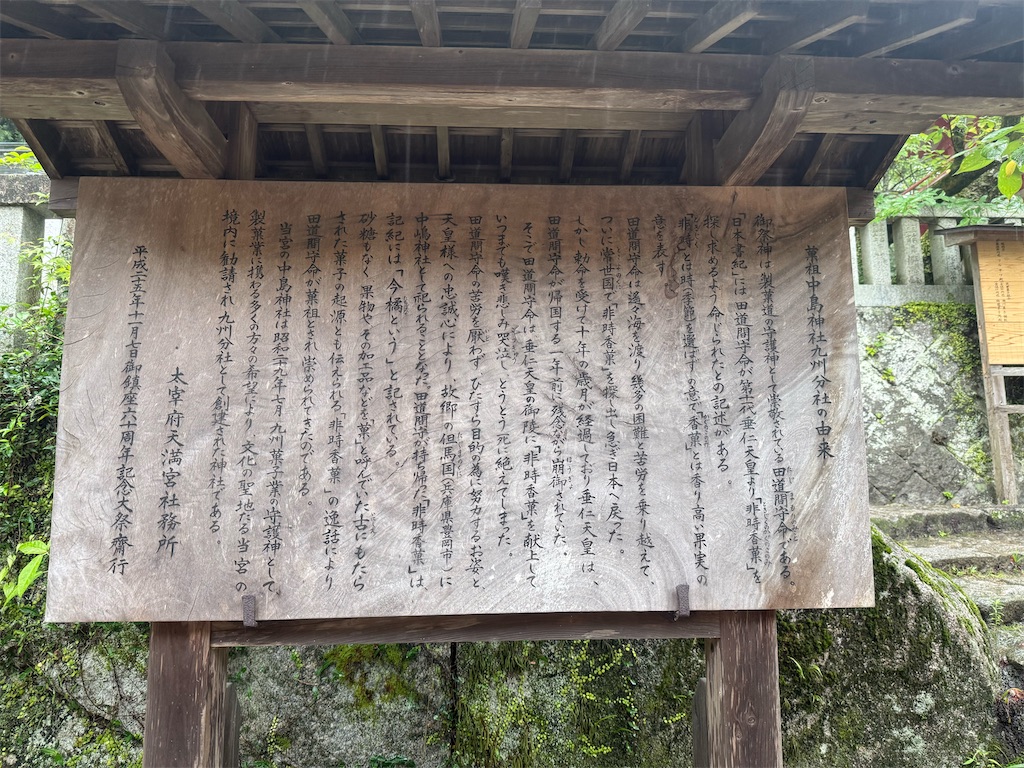 菓祖中島神社九州分社の由来
御祭神は製菓道の守護神として崇敬されている田道間守命である。
「日本書紀」には田道間守命が第十一代垂仁天皇より「非時香菓」を
探し求めるよう命じられたとの記述がある
「非時」とは時季節を選ばずの意で「香菓」とは香り高き果実の
意を表す
田道間守命は遙々海を渡り幾多の困難と苦労を乗り越えて、
ついに常世国で「非時香菓」を探し出し急ぎ日本へ戻った。
しかし勅命を受けて十年の歳月が経過しており垂仁天皇は、
田道間守命が帰国する一年前に残念ながら崩御されていた。
そこで田道間守命は垂仁天皇の御陵に「非時香菓」を献上して
いつまでも嘆き悲しみ哭泣し、とうとう死に絶えてしまった。
田道間守命の苦労を厭わずひたすら目的の為に努力するお姿と、
天皇様への忠誠心により、故郷の但馬国(兵庫県豊岡市)に
中嶋神社として祀られることとなった。田道間守が持ち帰った「非時香菓」は、
記紀には「今橘という」と記されている。
砂糖もなく、果物とその加工品などを「菓」と呼んでいた古にもたら
された菓子の起源とも伝えられる「非時香菓」の逸話により
田道間守命が菓祖とされ崇められてきたのである。
当宮の中島神社は昭和二十九年七月、九州菓子業の守護神として、
製菓業に携わる多くの方々の希望により、文化の聖地たる当宮の
境内に勧請され九州分社として創建された神社である
太宰府天満宮社務所
平成二五年十一月七日御鎮座六十周年記念大祭齋行